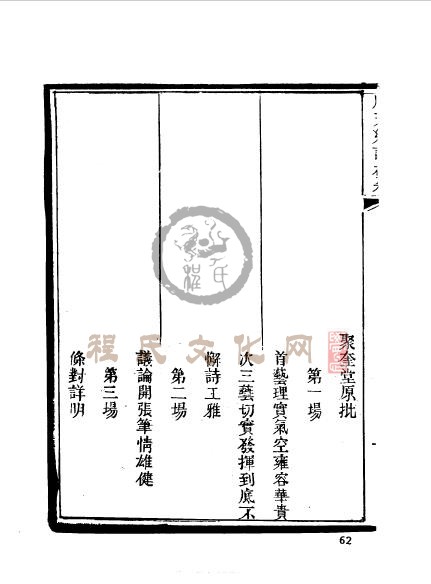 聚奎堂原批
第一場
首藝理實氣空雍容華貴
次三藝切實發揮到底不
懈詩工雅
第二場
議論開張筆情雄健
第三場
條對詳明
程氏文化网
62